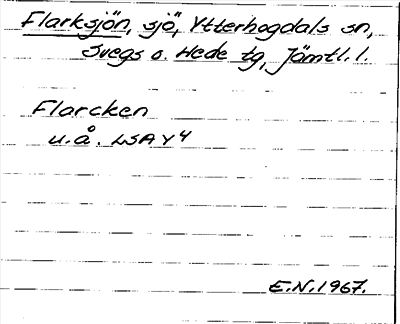 Flarksjön, sjö, Ytterhogdals sn,
Svegs o. Hede tg, Jämtl. l.
Flarcken
u.å. LSA Y4
E.N. 1967.